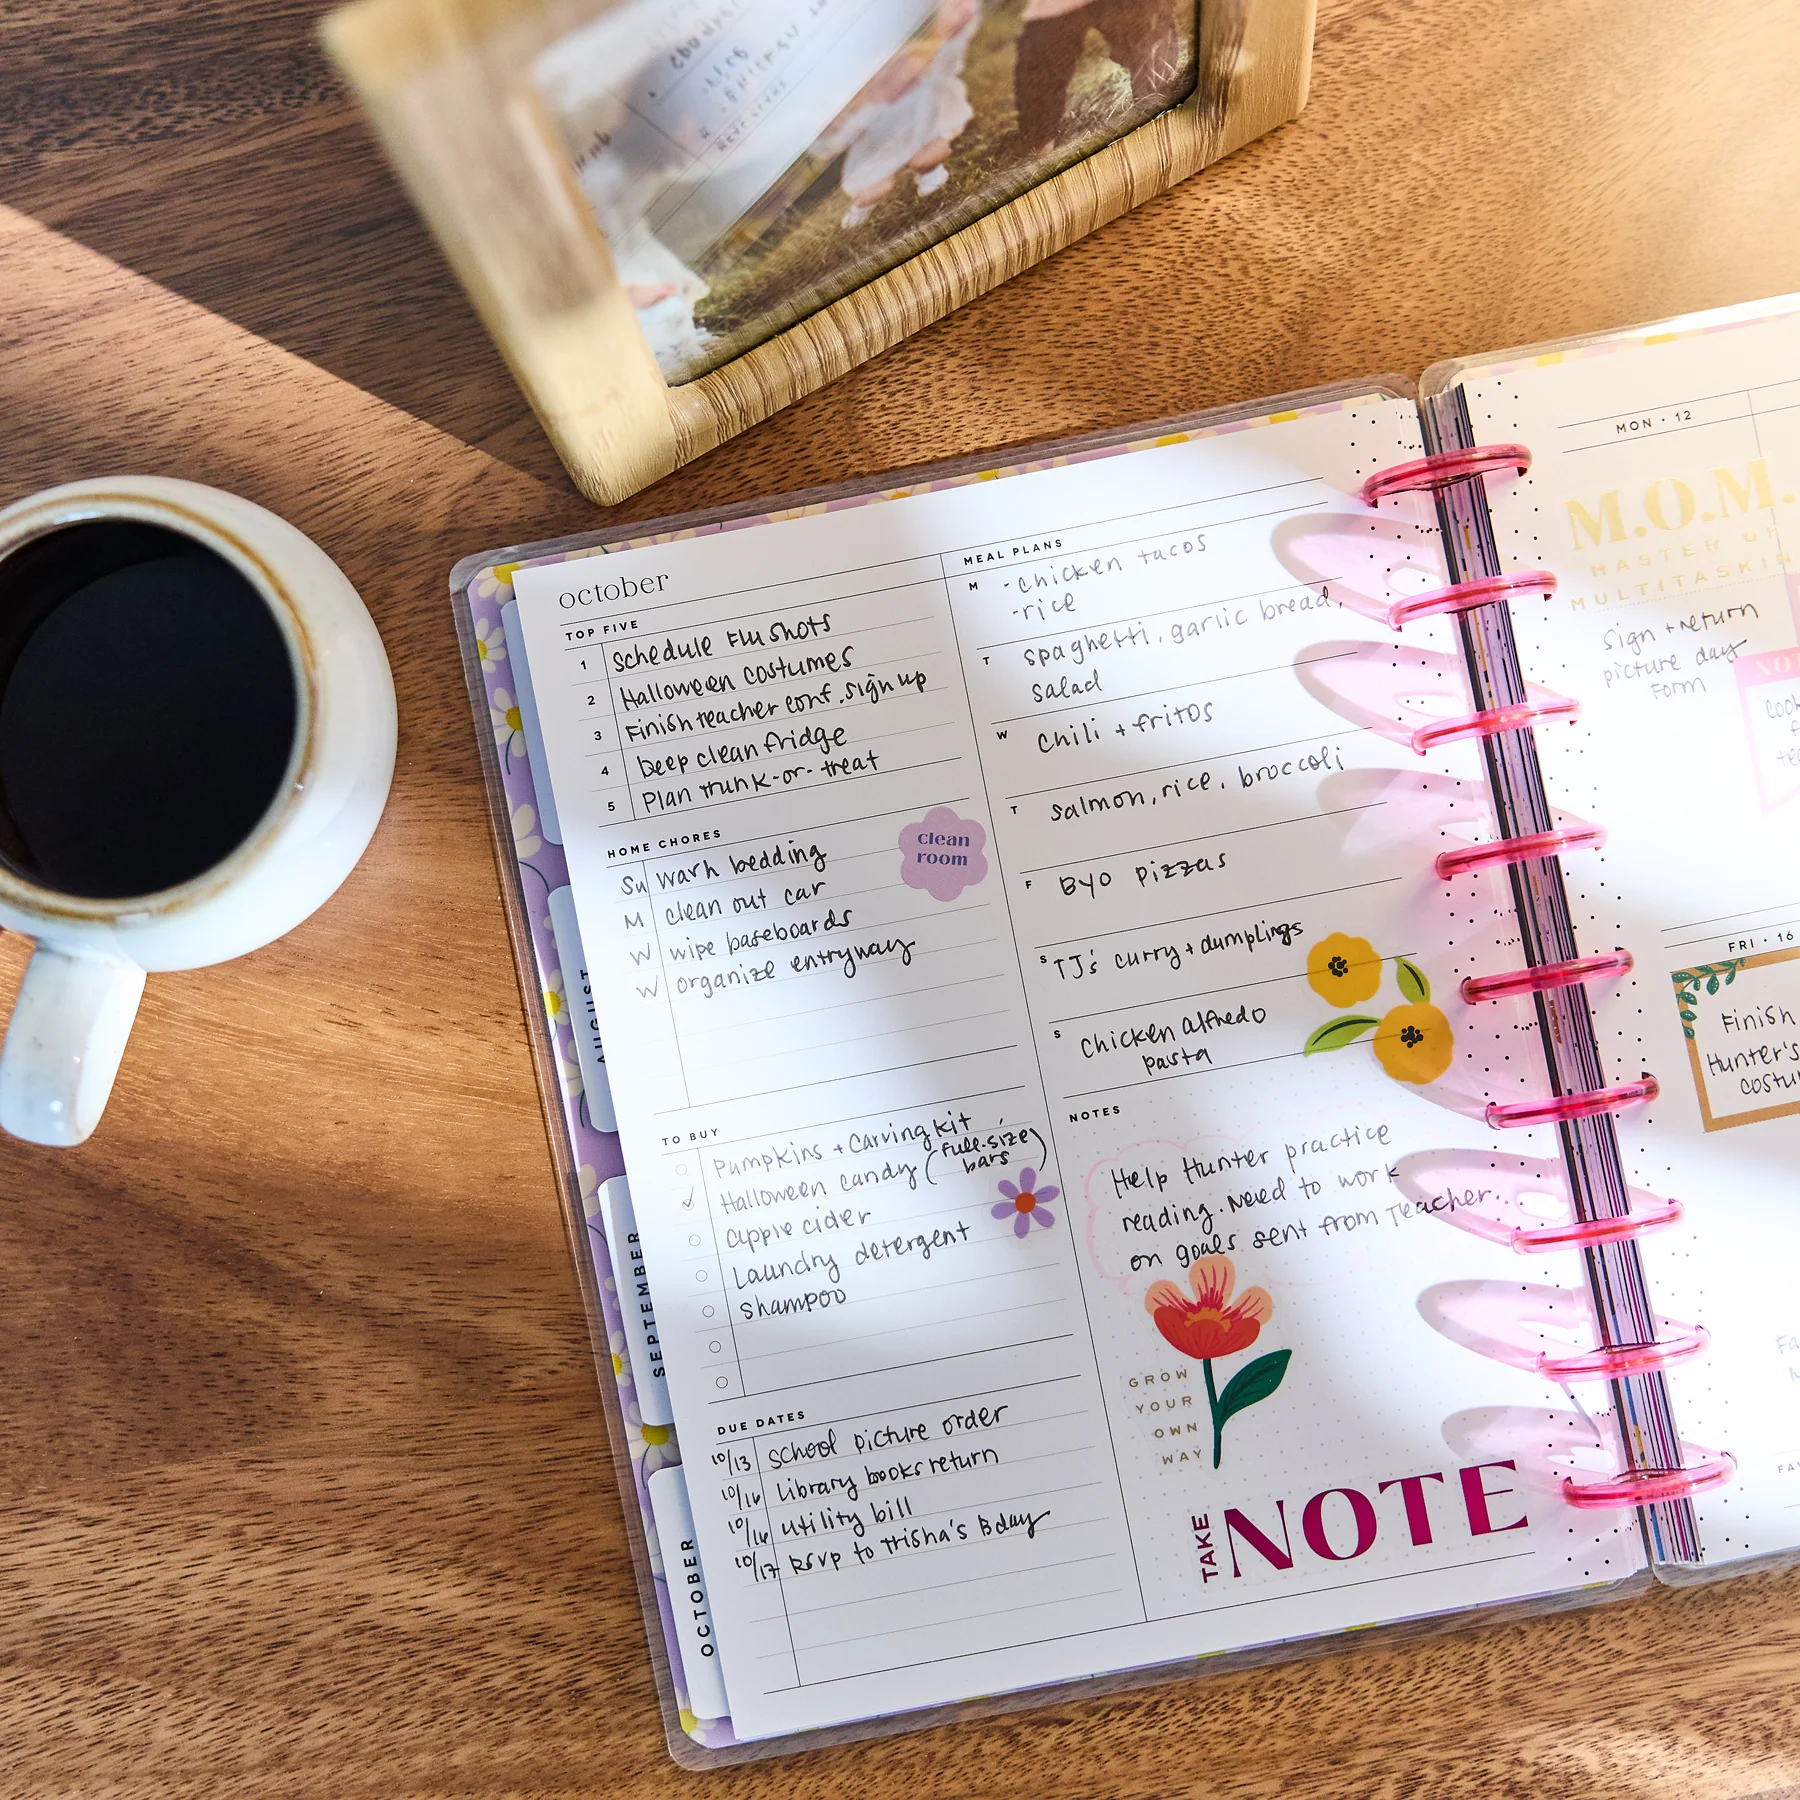 october
TOP FIVE
1 Schedule Flu Shots
2 Halloween costumes
3 Finish teacher conf. sign up
4 Deep clean fridge
5 Plan trunk-or-treat
HOME CHORES
clean
room
Su Wash bedding
M clean out car
W wipe baseboards
W organize entryway
TO BUY
Pumpkins + Carving kit
✓ Halloween candy (full-size
bars)
apple cider
Laundry detergent
Shampoo
DUE DATES
10/13 School picture order
10/16 Library books return
10/16 utility bill
10/17 RSVP to Trisha's Bday
MEAL PLANS
M - chicken tacos
- rice
T Spaghetti, garlic bread,
Salad
W Chili + fritos
T Salmon, rice, broccoli
F BYO pizzas
S TJ's curry + dumplings
S Chicken alfredo
pasta
NOTES
Help Hunter practice
reading. Need to work
on goals sent from Teacher.
GROW
YOUR
OWN
WAY
TAKE
NOTE
AUGUST
SEPTEMBER
OCTOBER
MON · 12
M.O.M.
MASTER OF
MULTITASKIN
Sign + return
picture day
Form
FRI · 16
Finish
Hunter's